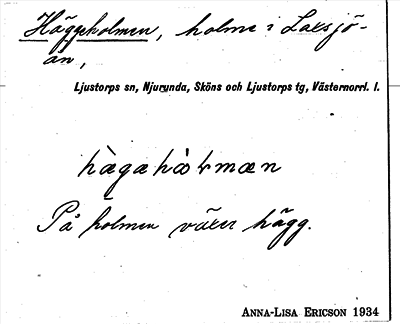 Häggeholmen, holme i Laxsjö-
ån,
Ljustorps sn, Njurunda, Sköns och Ljustorps tg, Västernorrl. l.
hàgahòlmæn
På holmen växer hägg.
ANNA-LISA ERICSON 1934